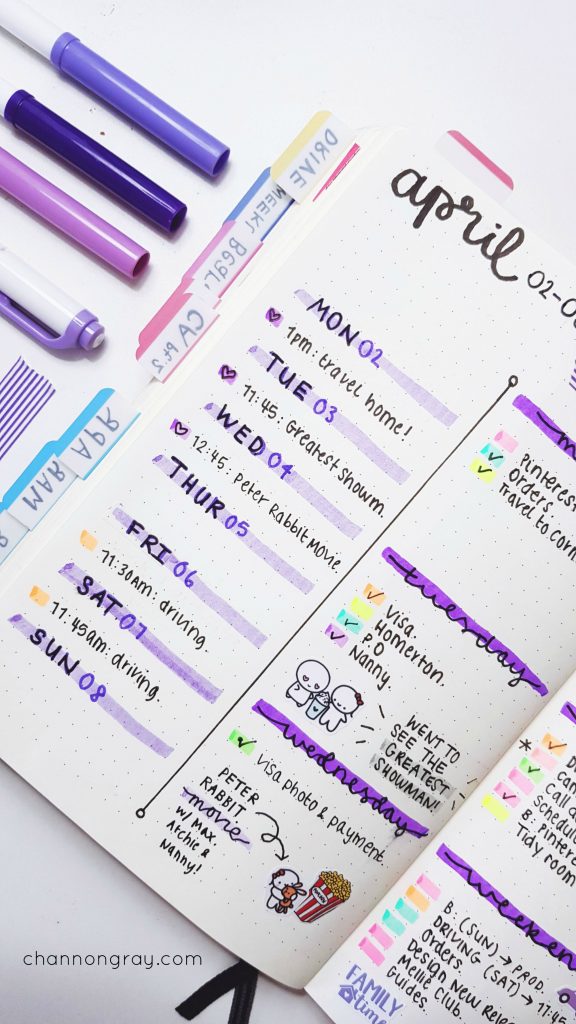 DRIVE
WEEKL
Bear,
CA pt.2
APR
MAR
april
02-0
MON 02
1pm: travel home!
TUE 03
11:45: Greatest showm.
WED 04
12:45: Peter Rabbit Movie.
THUR 05
FRI 06
11:30am: driving.
SAT 07
11:45am: driving.
SUN 08
Pinterest
Orders.
Travel to corn
tuesday
Visa.
Homerton.
P.O
Nanny.
WENT TO
SEE THE
GREATEST
SHOWMAN!
wednesday
Visa photo & payment.
PETER
RABBIT
movie
w/ Max,
Archie &
Nanny!
Call
Schedul
B: pinter
Tidy room
weeken
B: (SUN) → PROD.
DRIVING (SAT) → 11:45
Orders.
Design new Relea
Mellie Club.
Guides.
FAMILY
time
channongray.com